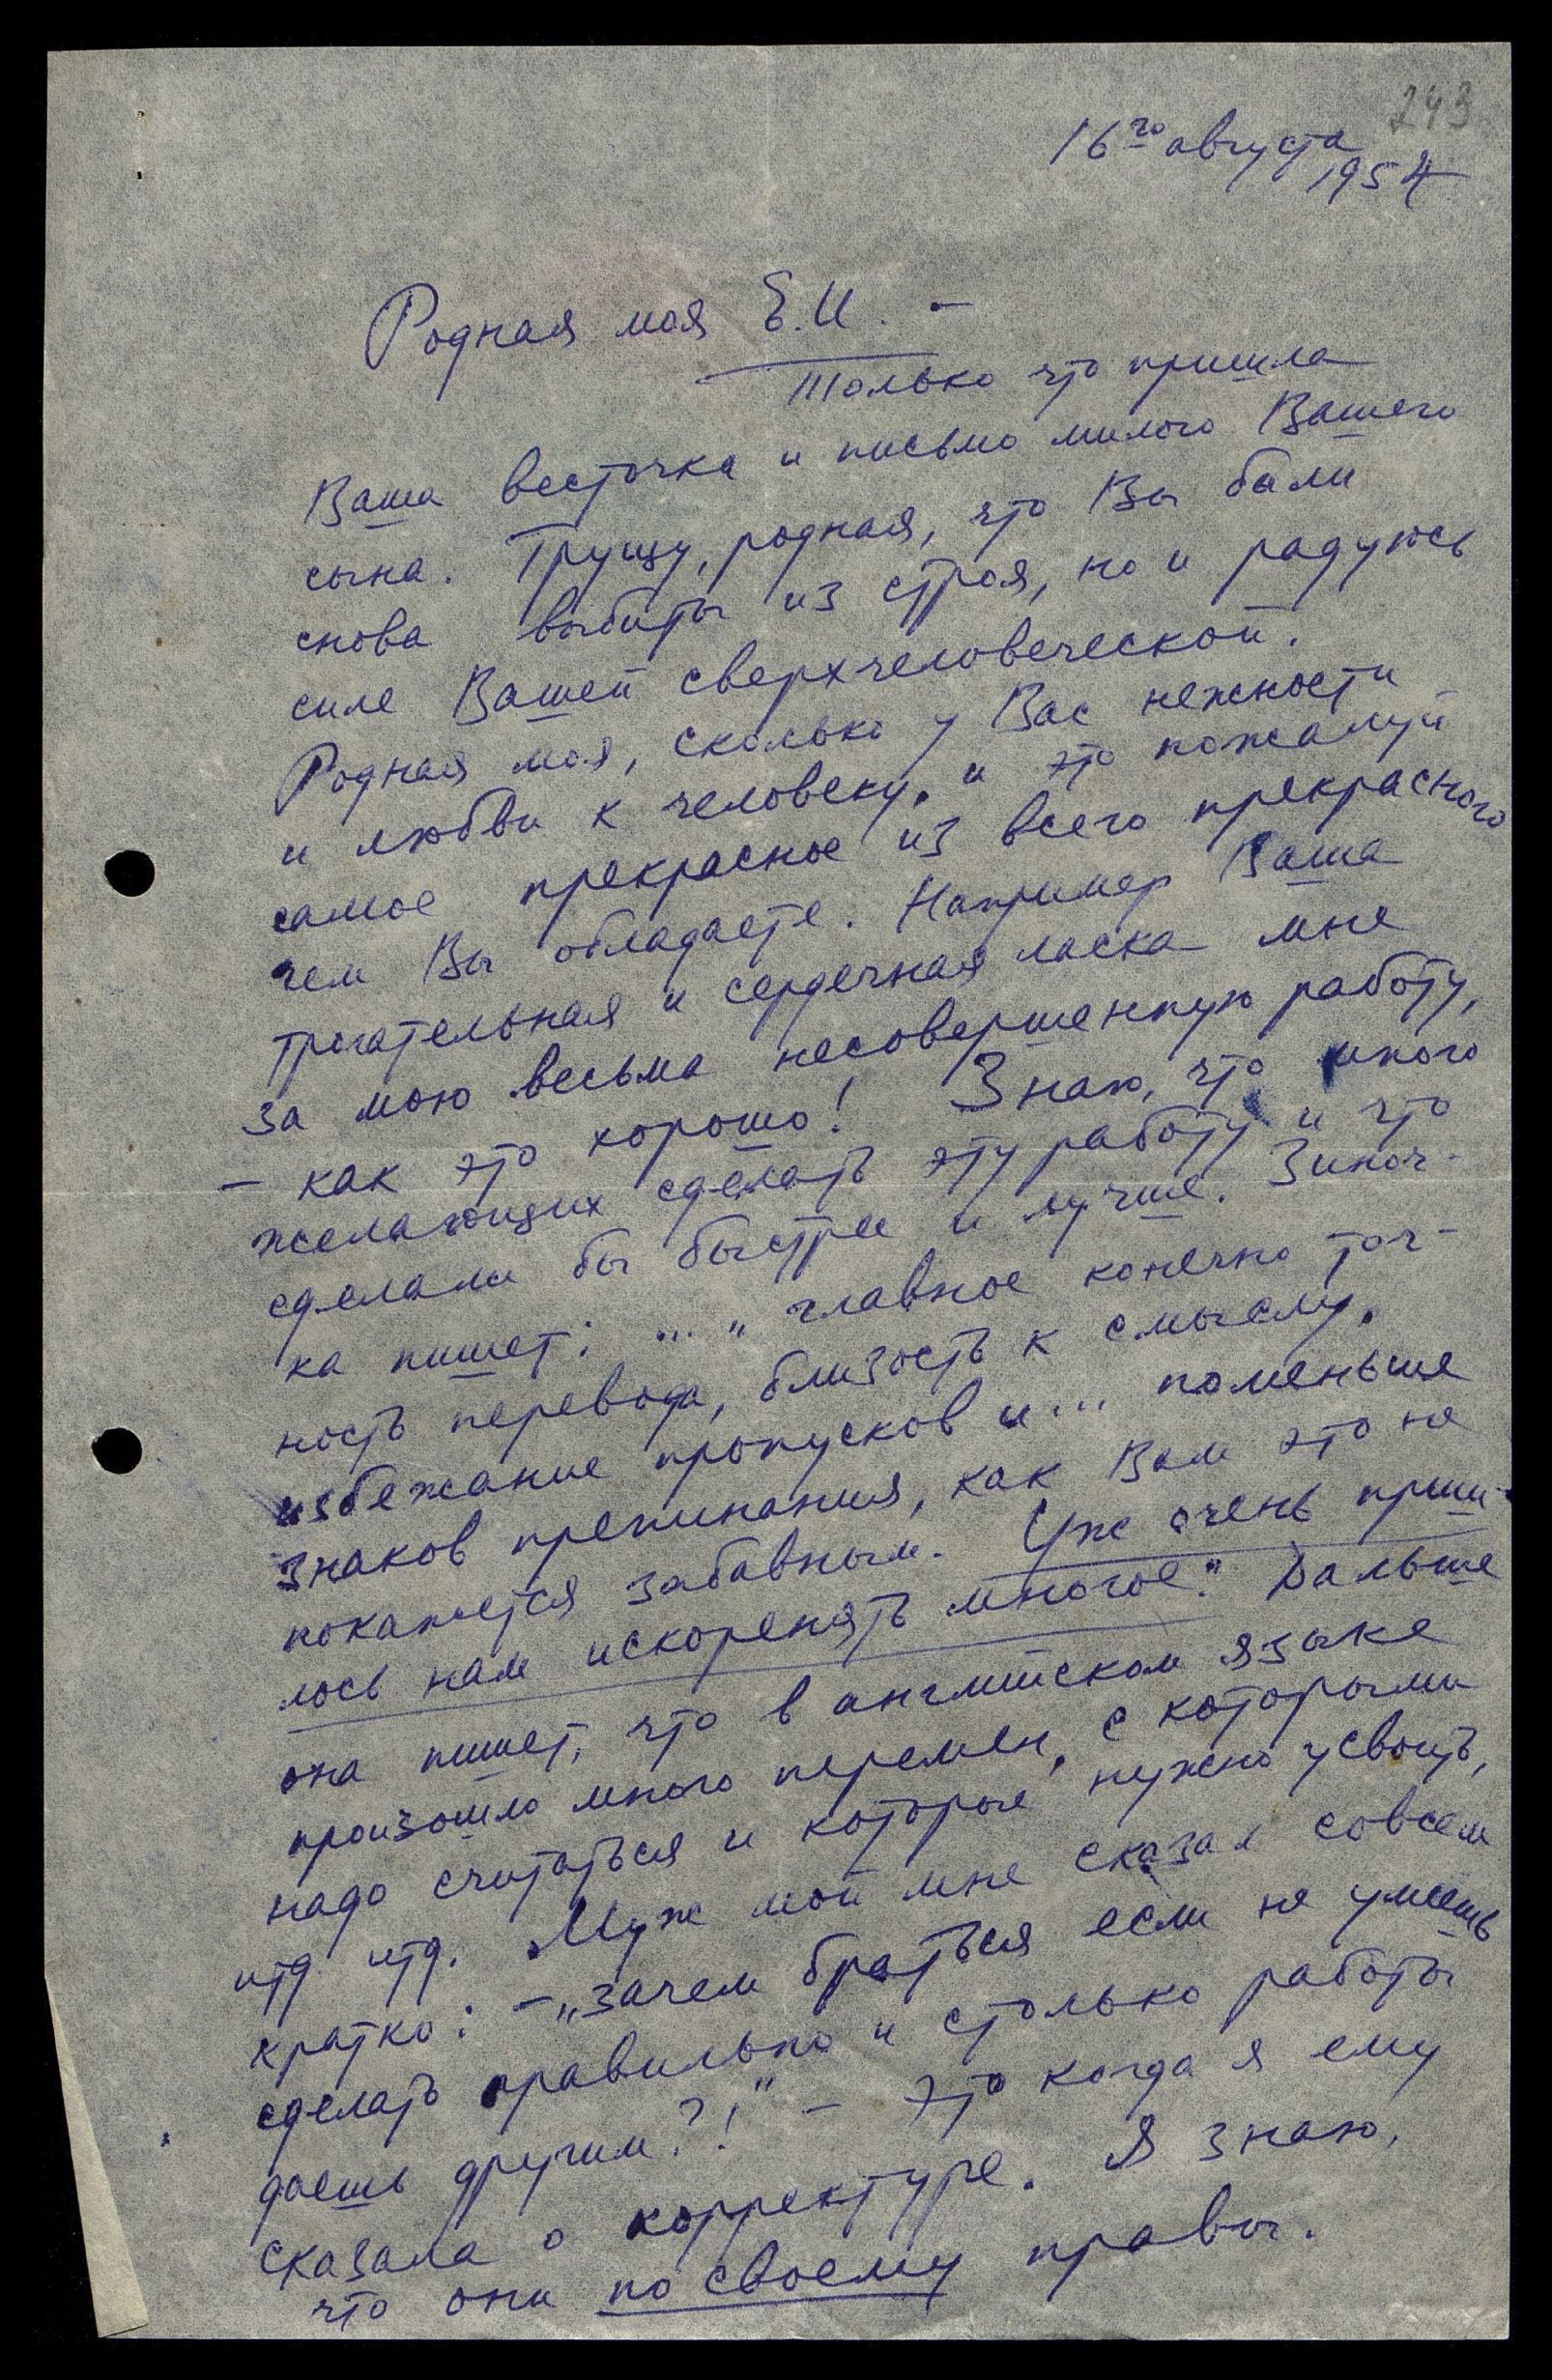 243
16го августа
1954
Родная моя Е.И. –
Только что пришла
Ваша весточка и письмо милого Вашего
сына. Грущу, родная, что Вы были
снова выбиты из строя, но и радуюсь
силе Вашей сверхчеловеческой.
Родная моя, сколько у Вас нежности
и любви к человеку, и это пожалуй
самое прекрасное из всего прекрасного
чем Вы обладаете. Например Ваша
трогательная и сердечная ласка мне
за мою весьма несовершенную работу,
– как это хорошо! Знаю, что много
желающих сделать эту работу и что
сделали бы быстрее и лучше. Зиноч-
ка пишет: ... „главное конечно точ-
ность перевода, близость к смыслу,
избежание пропусков и... поменьше
знаков препинания, как Вам это не
покажется забавным. Уж очень приш-
лось нам искоренять многое." Дальше
она пишет, что в английском языке
произошло много перемен, с которыми
надо считаться и которые нужно усвоить,
итд итд. Муж мой мне сказал совсем
кратко: – „зачем браться если не умеешь
сделать правильно и столько работы
даешь другим?!" – это когда я ему
сказала о корректуре. Я знаю,
что они по своему правы.